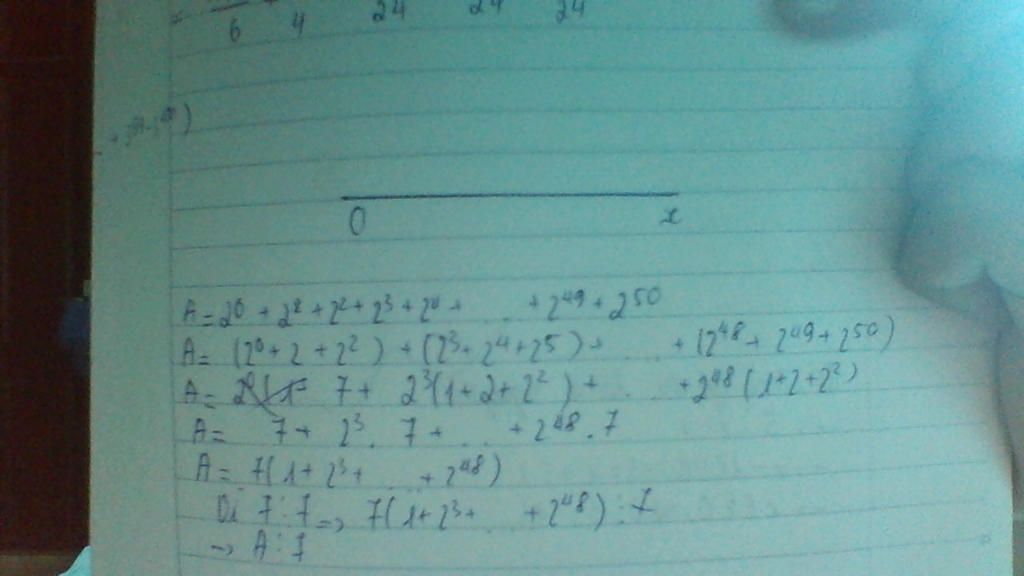 6 4 24 24 24
)
O x
A = 2⁰ + 2² + 2² + 2³ + 2⁴ + ... + 2⁴⁹ + 2⁵⁰
A = (2⁰ + 2 + 2²) + (2³ + 2⁴ + 2⁵) + ... + (2⁴⁸ + 2⁴⁹ + 2⁵⁰)
A = 7 + 2³(1 + 2 + 2²) + ... + 2⁴⁸(1 + 2 + 2²)
A = 7 + 2³. 7 + ... + 2⁴⁸. 7
A = 7(1 + 2³ + ... + 2⁴⁸)
7 ⋮ 7 => 7(1 + 2³ + ... + 2⁴⁸) ⋮ 7
→ A ⋮ 7